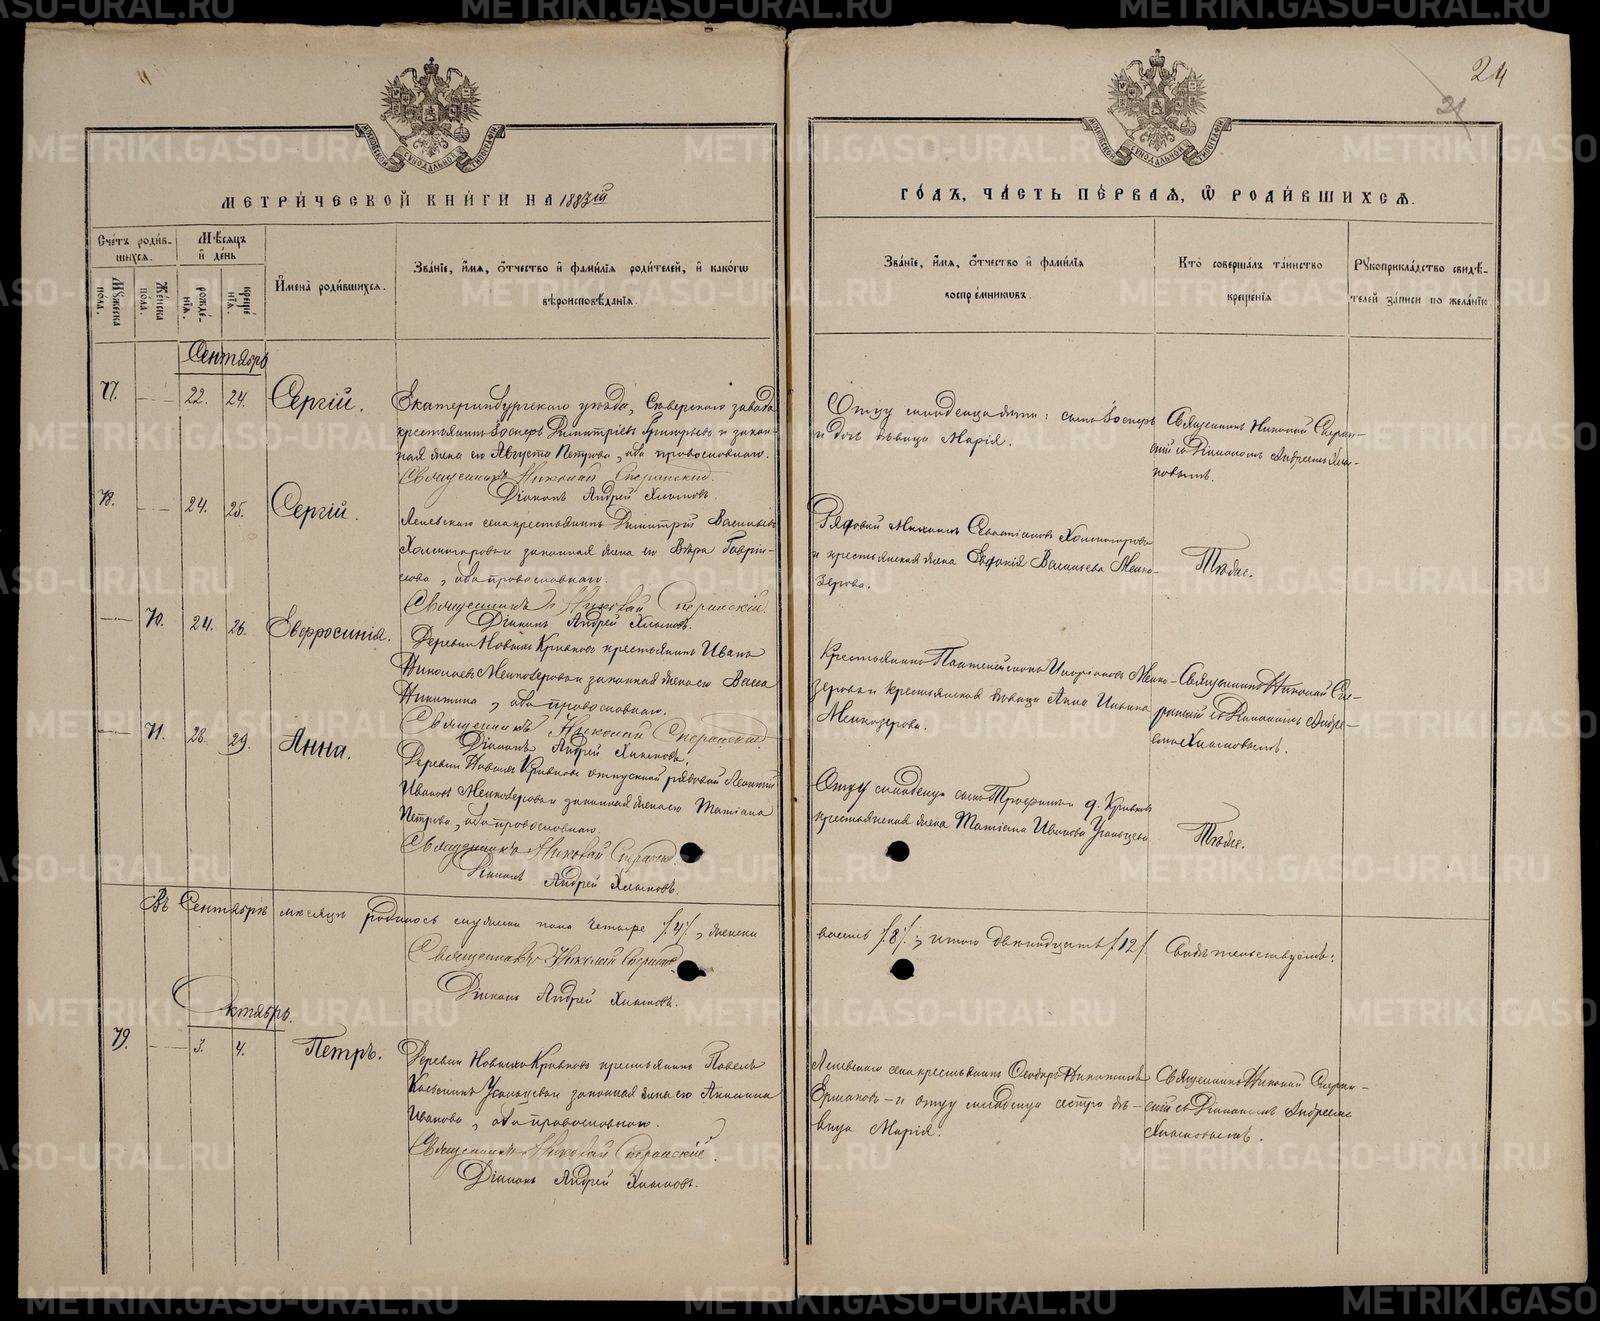 24
21
МЕТРИ́ЧЕСКОЙ КНИ́ГИ НА 1883й
ГО́ДЪ, ЧА́СТЬ ПЕ́РВАЯ, Ѿ РОДИ́ВШИХСѦ.
Сче́тъ роди́вшихсѧ.
Мѣ́сяцъ и де́нь
Му́жеска по́ла.
Же́нска по́ла.
рожде́нїѧ.
креще́нїѧ.
И҆мена̀ роди́вшихсѧ.
Зва́нїе, и҆́мѧ, ѻ҆́тчество и҆ фами́лїѧ роди́телей, и҆ како́гѡ
вѣроисповѣ́данїѧ.
Зва́нїе, и҆́мѧ, ѻ҆́тчество и҆ фами́лїѧ
воспрїе́мникѡвъ.
Кто̀ соверша́лъ та́инство
креще́нїѧ
Рꙋкоприкла́дство свидѣ́телей за́писи по жела́нїю.
Сентябрь
77. 22. 24. Сергій.
Екатеринбургскаго уѣзда, Сѣверскаго завода
крестьянинъ Іосифъ Димитріевъ Григорьевъ и закон-
ная жена его Августа Петрова, оба православнаго.
Священникъ Николай Сперанскій.
Діаконъ Андрей Хлыновъ.
Отцу младенца дѣти: сынъ Іосифъ
и дочь дѣвица Марія.
Священникъ Николай Сперан-
скій съ Діакономъ Андреемъ Хлы-
новымъ.
78. 24. 25. Сергій.
села крестьянинъ Димитрій Васильевъ
Холмогоровъ и законная жена его Вѣра Гаврiи-
лова, оба православнаго.
Священникъ Николай Сперанскій.
Діаконъ Андрей Хлыновъ.
Рядовой Михаилъ Севастіановъ Холмогоровъ
и крестьянская жена Евдокія Васильева Мелко-
зерова.
Тѣже.
70. 24. 26. Евфросинія.
Деревни Новыхъ Кривковъ крестьянинъ Иванъ
Николаевъ Мелкозеровъ и законная жена его Васса
Никитина, оба православнаго.
Священникъ Николай Сперанскій.
Діаконъ Андрей Хлыновъ.
Крестьянинъ Пантелеймонъ Мелко-
зеровъ и крестьянская дѣвица Анна Ильина
Мелкозерова.
Священникъ Николай Спе-
ранскій съ Діакономъ Андре-
емъ Хлыновымъ.
71. 28. 29. Анна.
Деревни Новыхъ Кривковъ отпускной рядовой Леонтій
Ивановъ Мелкозеровъ и законная жена его Татіана
Петрова, оба православнаго.
Священникъ Николай Сперанскій.
Діаконъ Андрей Хлыновъ.
Отцу младенца сынъ Трофимъ и д. Кривковъ
крестьянская жена Татіана Иванова Усольцева
Тѣже.
Въ Сентябрѣ мѣсяцѣ родилось мужеска пола четыре /.4/., женска
восемь /.8/.; итого двѣнадцать /.12/.
Свидѣтельствуемъ:
Священникъ Николай Сперанскій.
Діаконъ Андрей Хлыновъ.
Октябрь.
79. 3. 4. Петръ.
Деревни Новыхъ Кривковъ крестьянинъ Павелъ
Усольцевъ и законная жена его Акилина
Иванова, оба православнаго.
Священникъ Николай Сперанскій.
Діаконъ Андрей Хлыновъ.
села крестьянинъ Ѳеодоръ
Ермаковъ и отцу младенца сестра дѣ-
вица Марія.
Священникъ Николай Сперан-
скій съ Діакономъ Андреемъ
Хлыновымъ.
METRIKI.GASO-URAL.RU